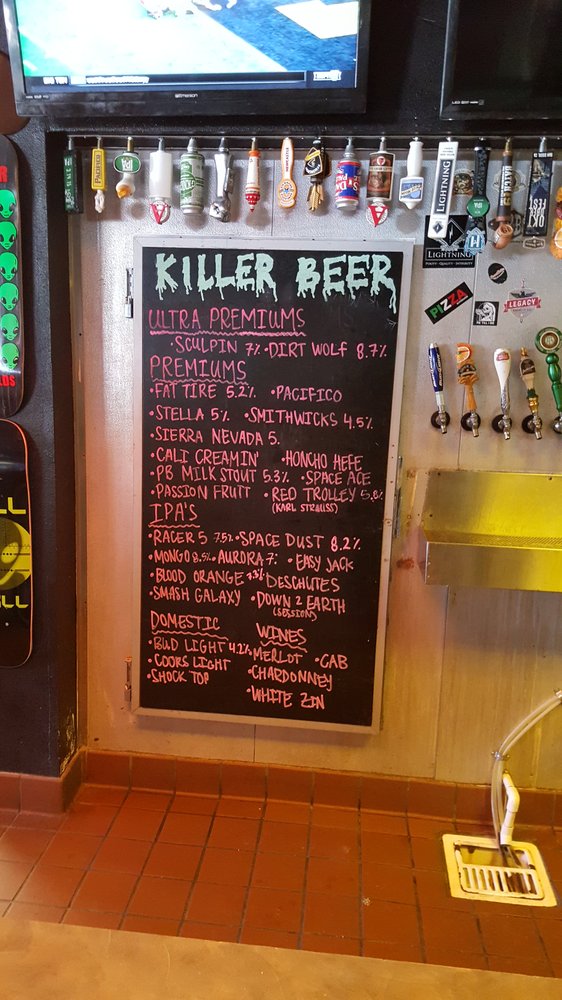 emerson
LED DCIT
PACIFICO
LIGHTNING
LIGHTNING
PURITY · QUALITY · INTEGRITY
PIZZA
LEGACY
KILLER BEER
ULTRA PREMIUMS
SCULPIN 7% • DIRT WOLF 8.7%
PREMIUMS
• FAT TIRE 5.2% • PACIFICO
• STELLA 5% • SMITHWICKS 4.5%
• SIERRA NEVADA 5.
• CALI CREAMIN' • HONCHO HEFE
• PB MILK STOUT 5.3% • SPACE ACE
• PASSION FRUIT • RED TROLLEY 5.8%
(KARL STRAUSS)
IPA'S
• RACER 5 7.5% • SPACE DUST 8.2%
• MONGO 8.5% • AURORA 7% • EASY JACK
• BLOOD ORANGE 7.5% • DESCHUTES
• SMASH GALAXY • DOWN 2 EARTH
(SESSION)
DOMESTIC
• BUD LIGHT 4.2%
• COORS LIGHT
• SHOCK TOP
WINES
• MERLOT • CAB
• CHARDONNEY
• WHITE ZIN